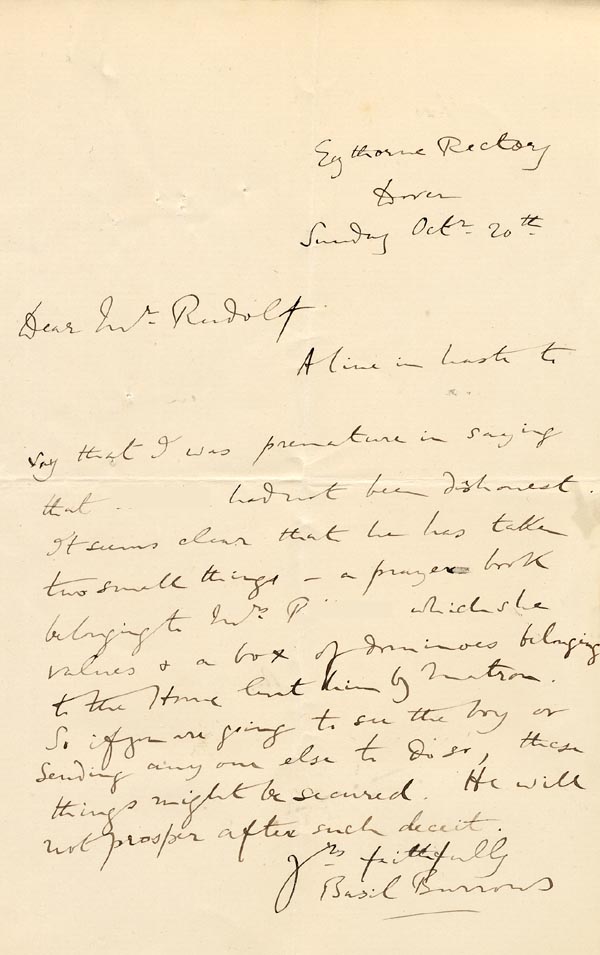 Eythorne Rectory
Dover
Sunday Octr. 20th
Dear Mr. Rudolf
A line in haste to
say that I was premature in saying
that had not been dishonest.
It seems clear that he has taken
two small things – a prayer book
belonging to Mrs P which she
values & a box of dominoes belonging
to the Home lent him by Matron.
So if you are going to see the boy or
sending any one else to do so, these
things might be secured. He will
not prosper after such deceit.
Yrs faithfully
Basil Burrows